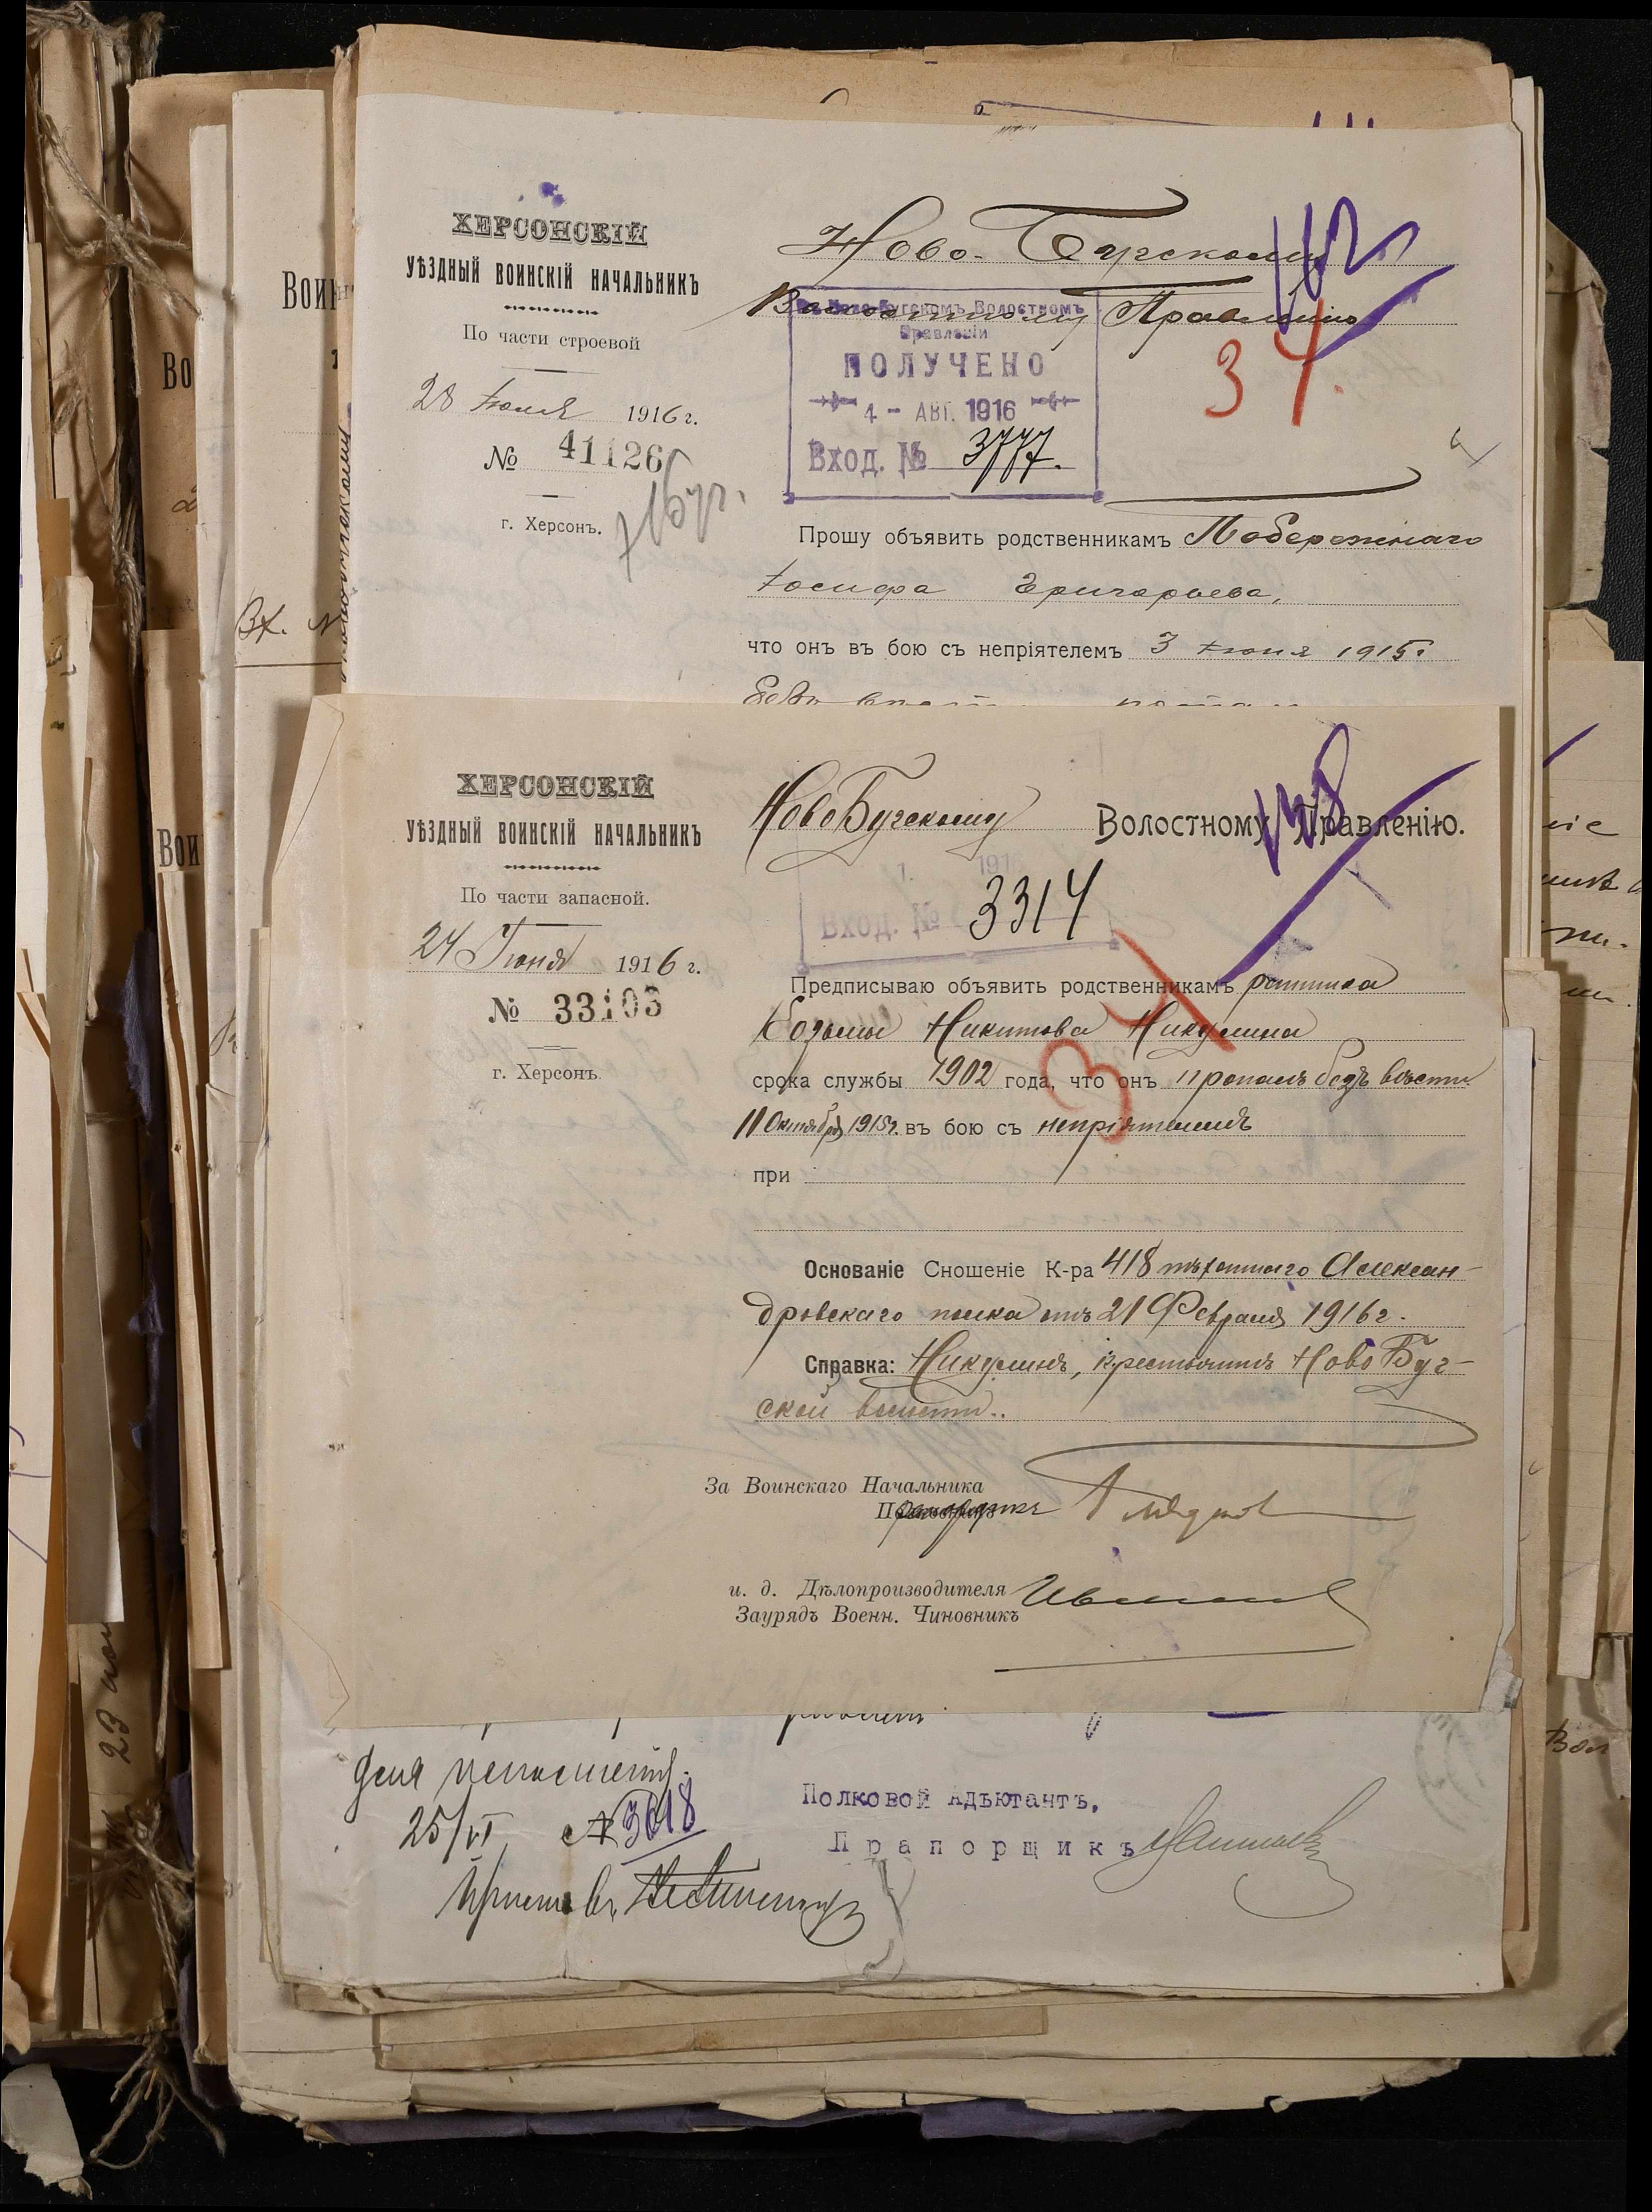 ХЕРСОНСКІЙ
УѢЗДНЫЙ ВОИНСКІЙ НАЧАЛЬНИКЪ
По части строевой
28 Іюля 1916 г.
№ 41126
г. Херсонъ.
Ново-Бугскому
Волостному Правленію
112
34.
Ново-Бугскомъ Волостномъ
Правленіи
ПОЛУЧЕНО
4 - АВГ. 1916
Вход. № 3777.
Прошу объявить родственникамъ Побережнаго
Іосифа Григорьева,
что онъ въ бою съ непріятелемъ 3 Іюня 1915 г
ХЕРСОНСКІЙ
УѢЗДНЫЙ ВОИНСКІЙ НАЧАЛЬНИКЪ
По части запасной.
24 Іюня 1916 г.
№ 33103
г. Херсонъ
НовоБугскому Волостному Правленію.
Вход. № 3314
Предписываю объявить родственникамъ ратника
Козьмы Никитова Никулина
срока службы 1902 года, что онъ пропалъ безъ вѣсти
11 Октября 1915г. въ бою съ непріятелемъ
при
Основаніе Сношеніе К-ра 418 пѣхотнаго Алексан-
дровскаго полка отъ 21 Февраля 1916 г.
Справка: Никулинъ, крестьянинъ Ново Буг-
ской волости..
За Воинскаго Начальника
и. д. Дѣлопроизводителя
Заурядъ Военн. Чиновникъ
25/VI № 3618
Полковой Адъютантъ,
Прапорщикъ
Воин
Во
Вх. №
Вои
23
Вол